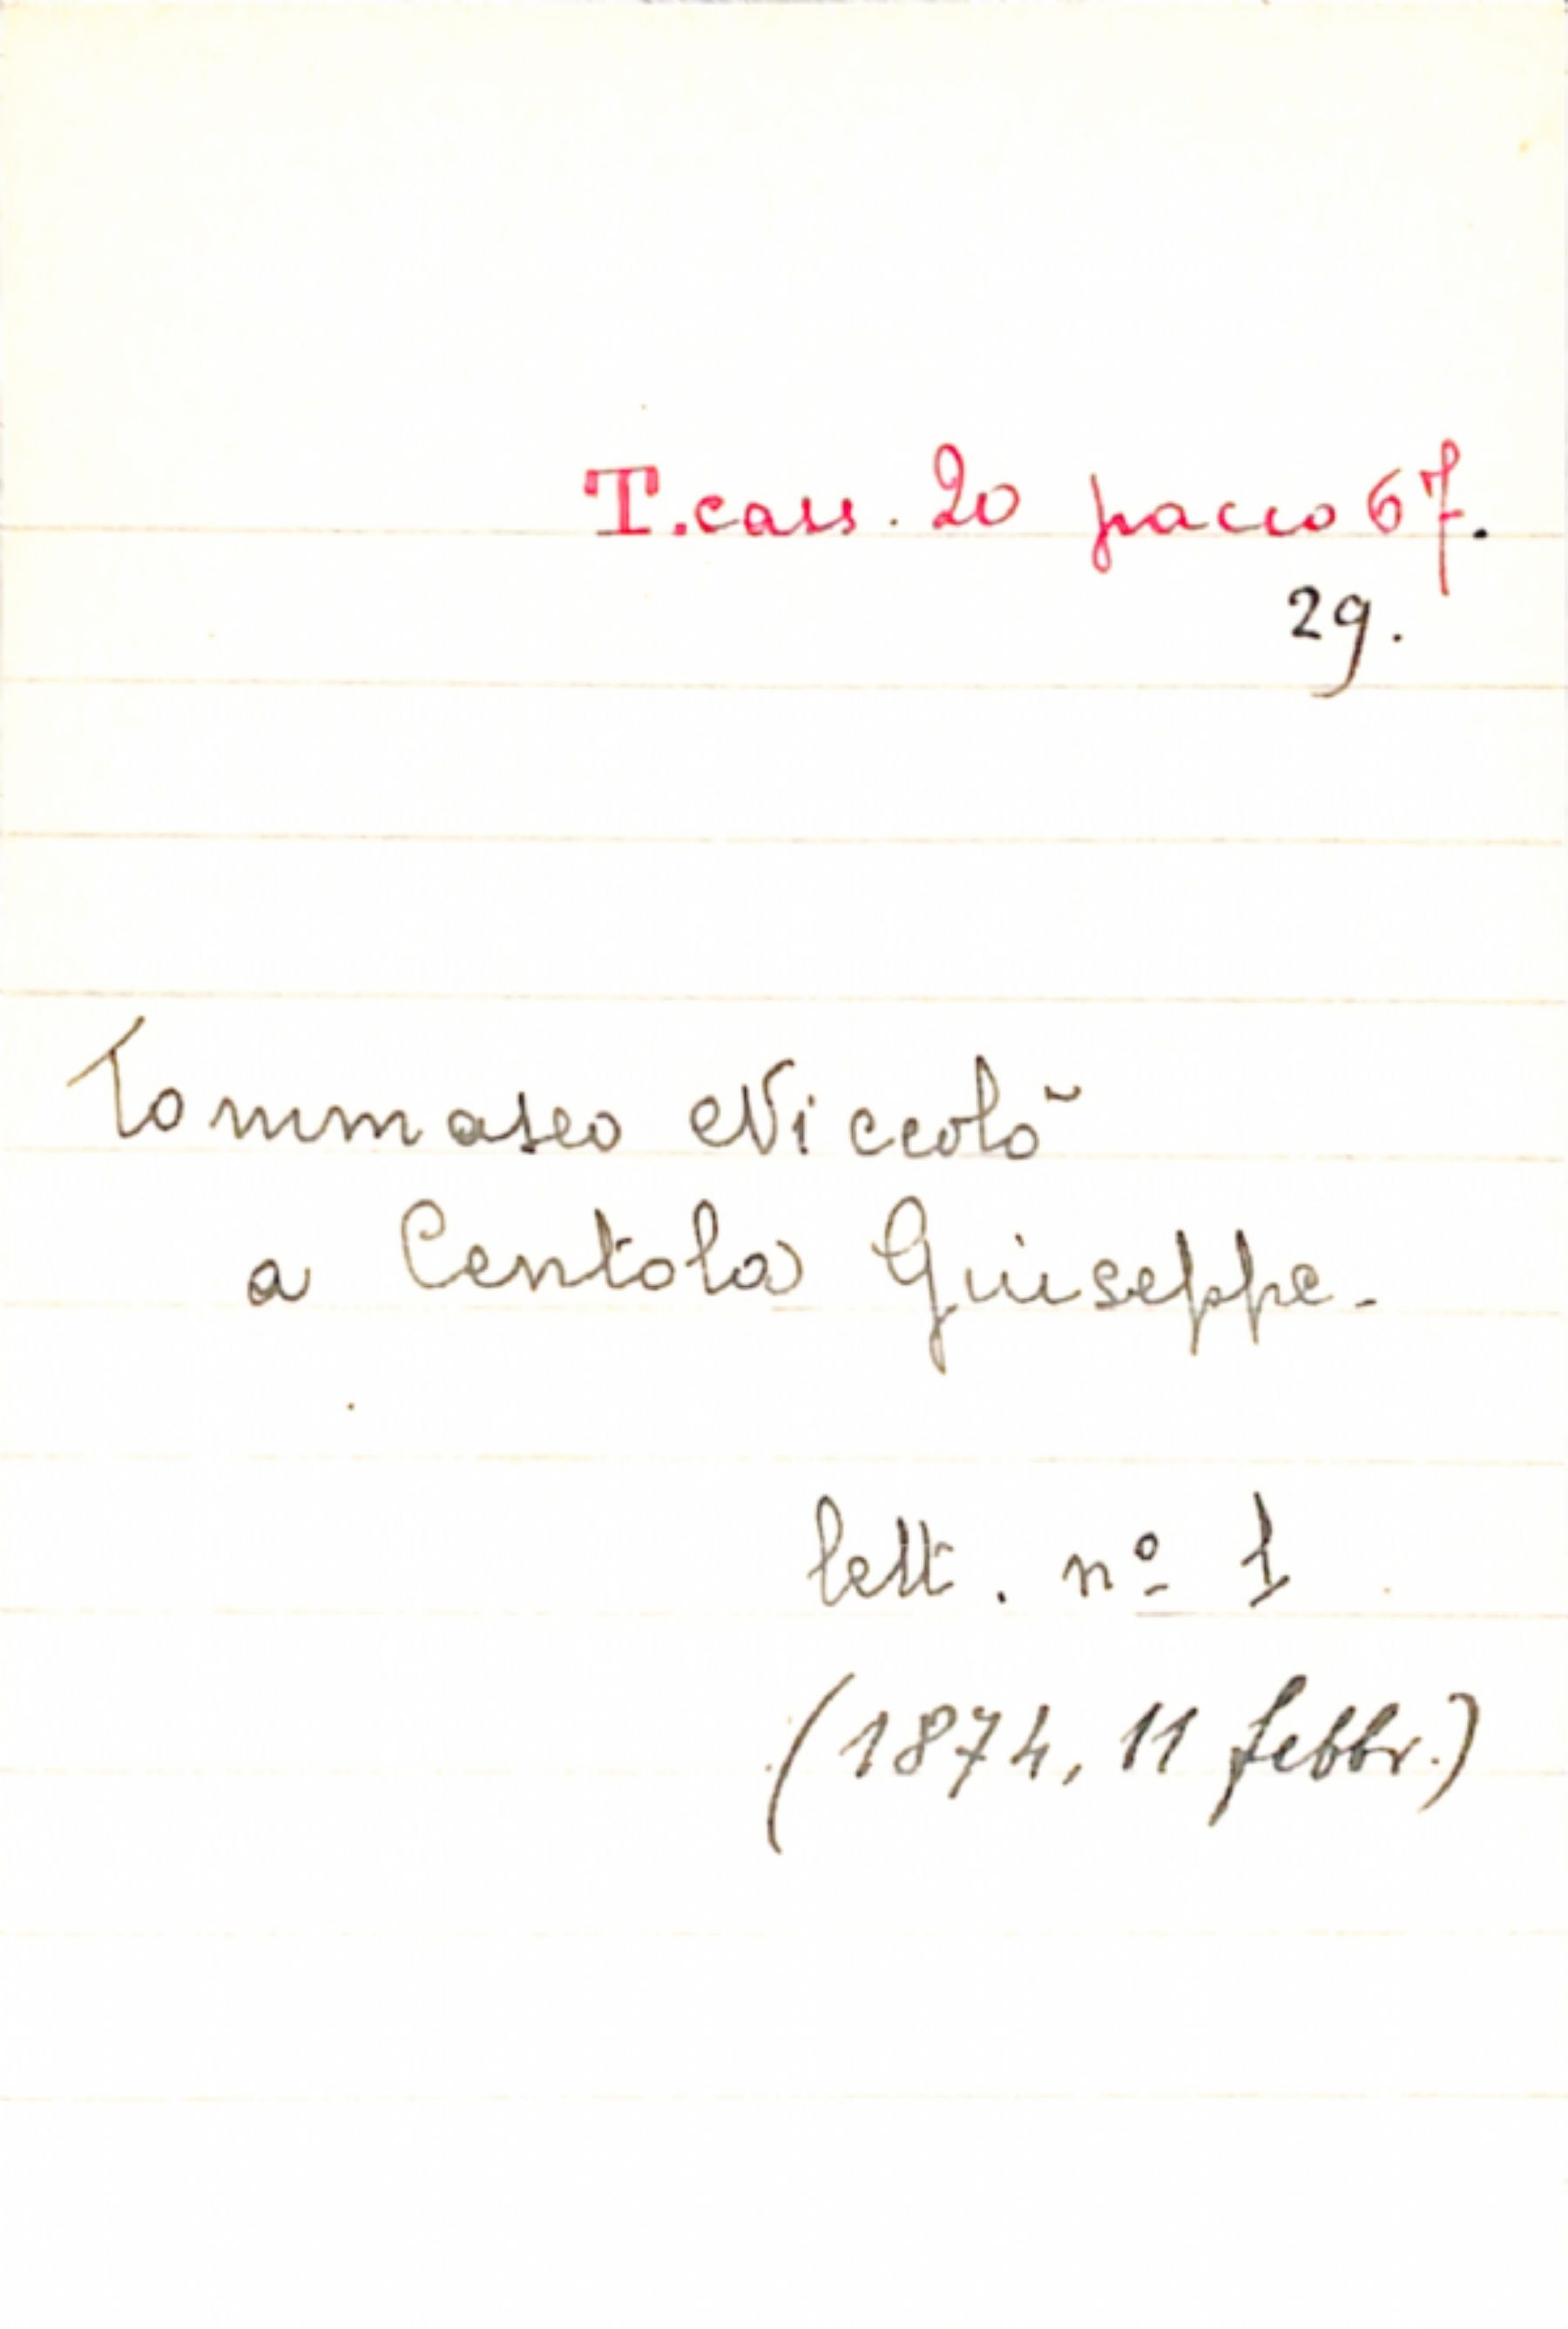 T. cass. 20 pacco 67.
29.
Tommaseo Niccolò
a Centola Giuseppe.
lett. nº 1
(1874, 11 febbr.)